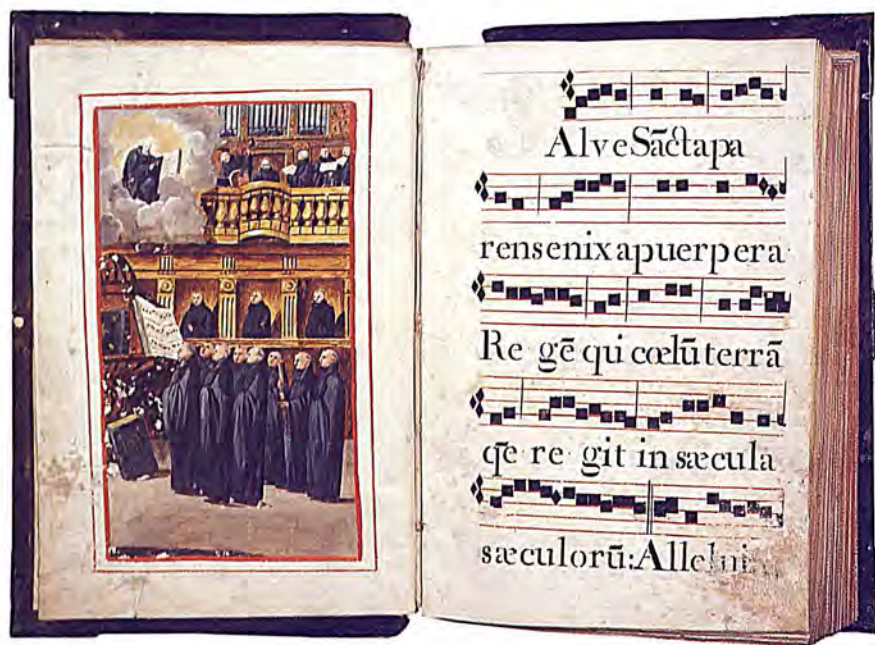 Alve Sāctapa
rensenixapuerpera
Re gē qui cœlū terrā
q̄e re git in sæcula
sæculorū: Allelui